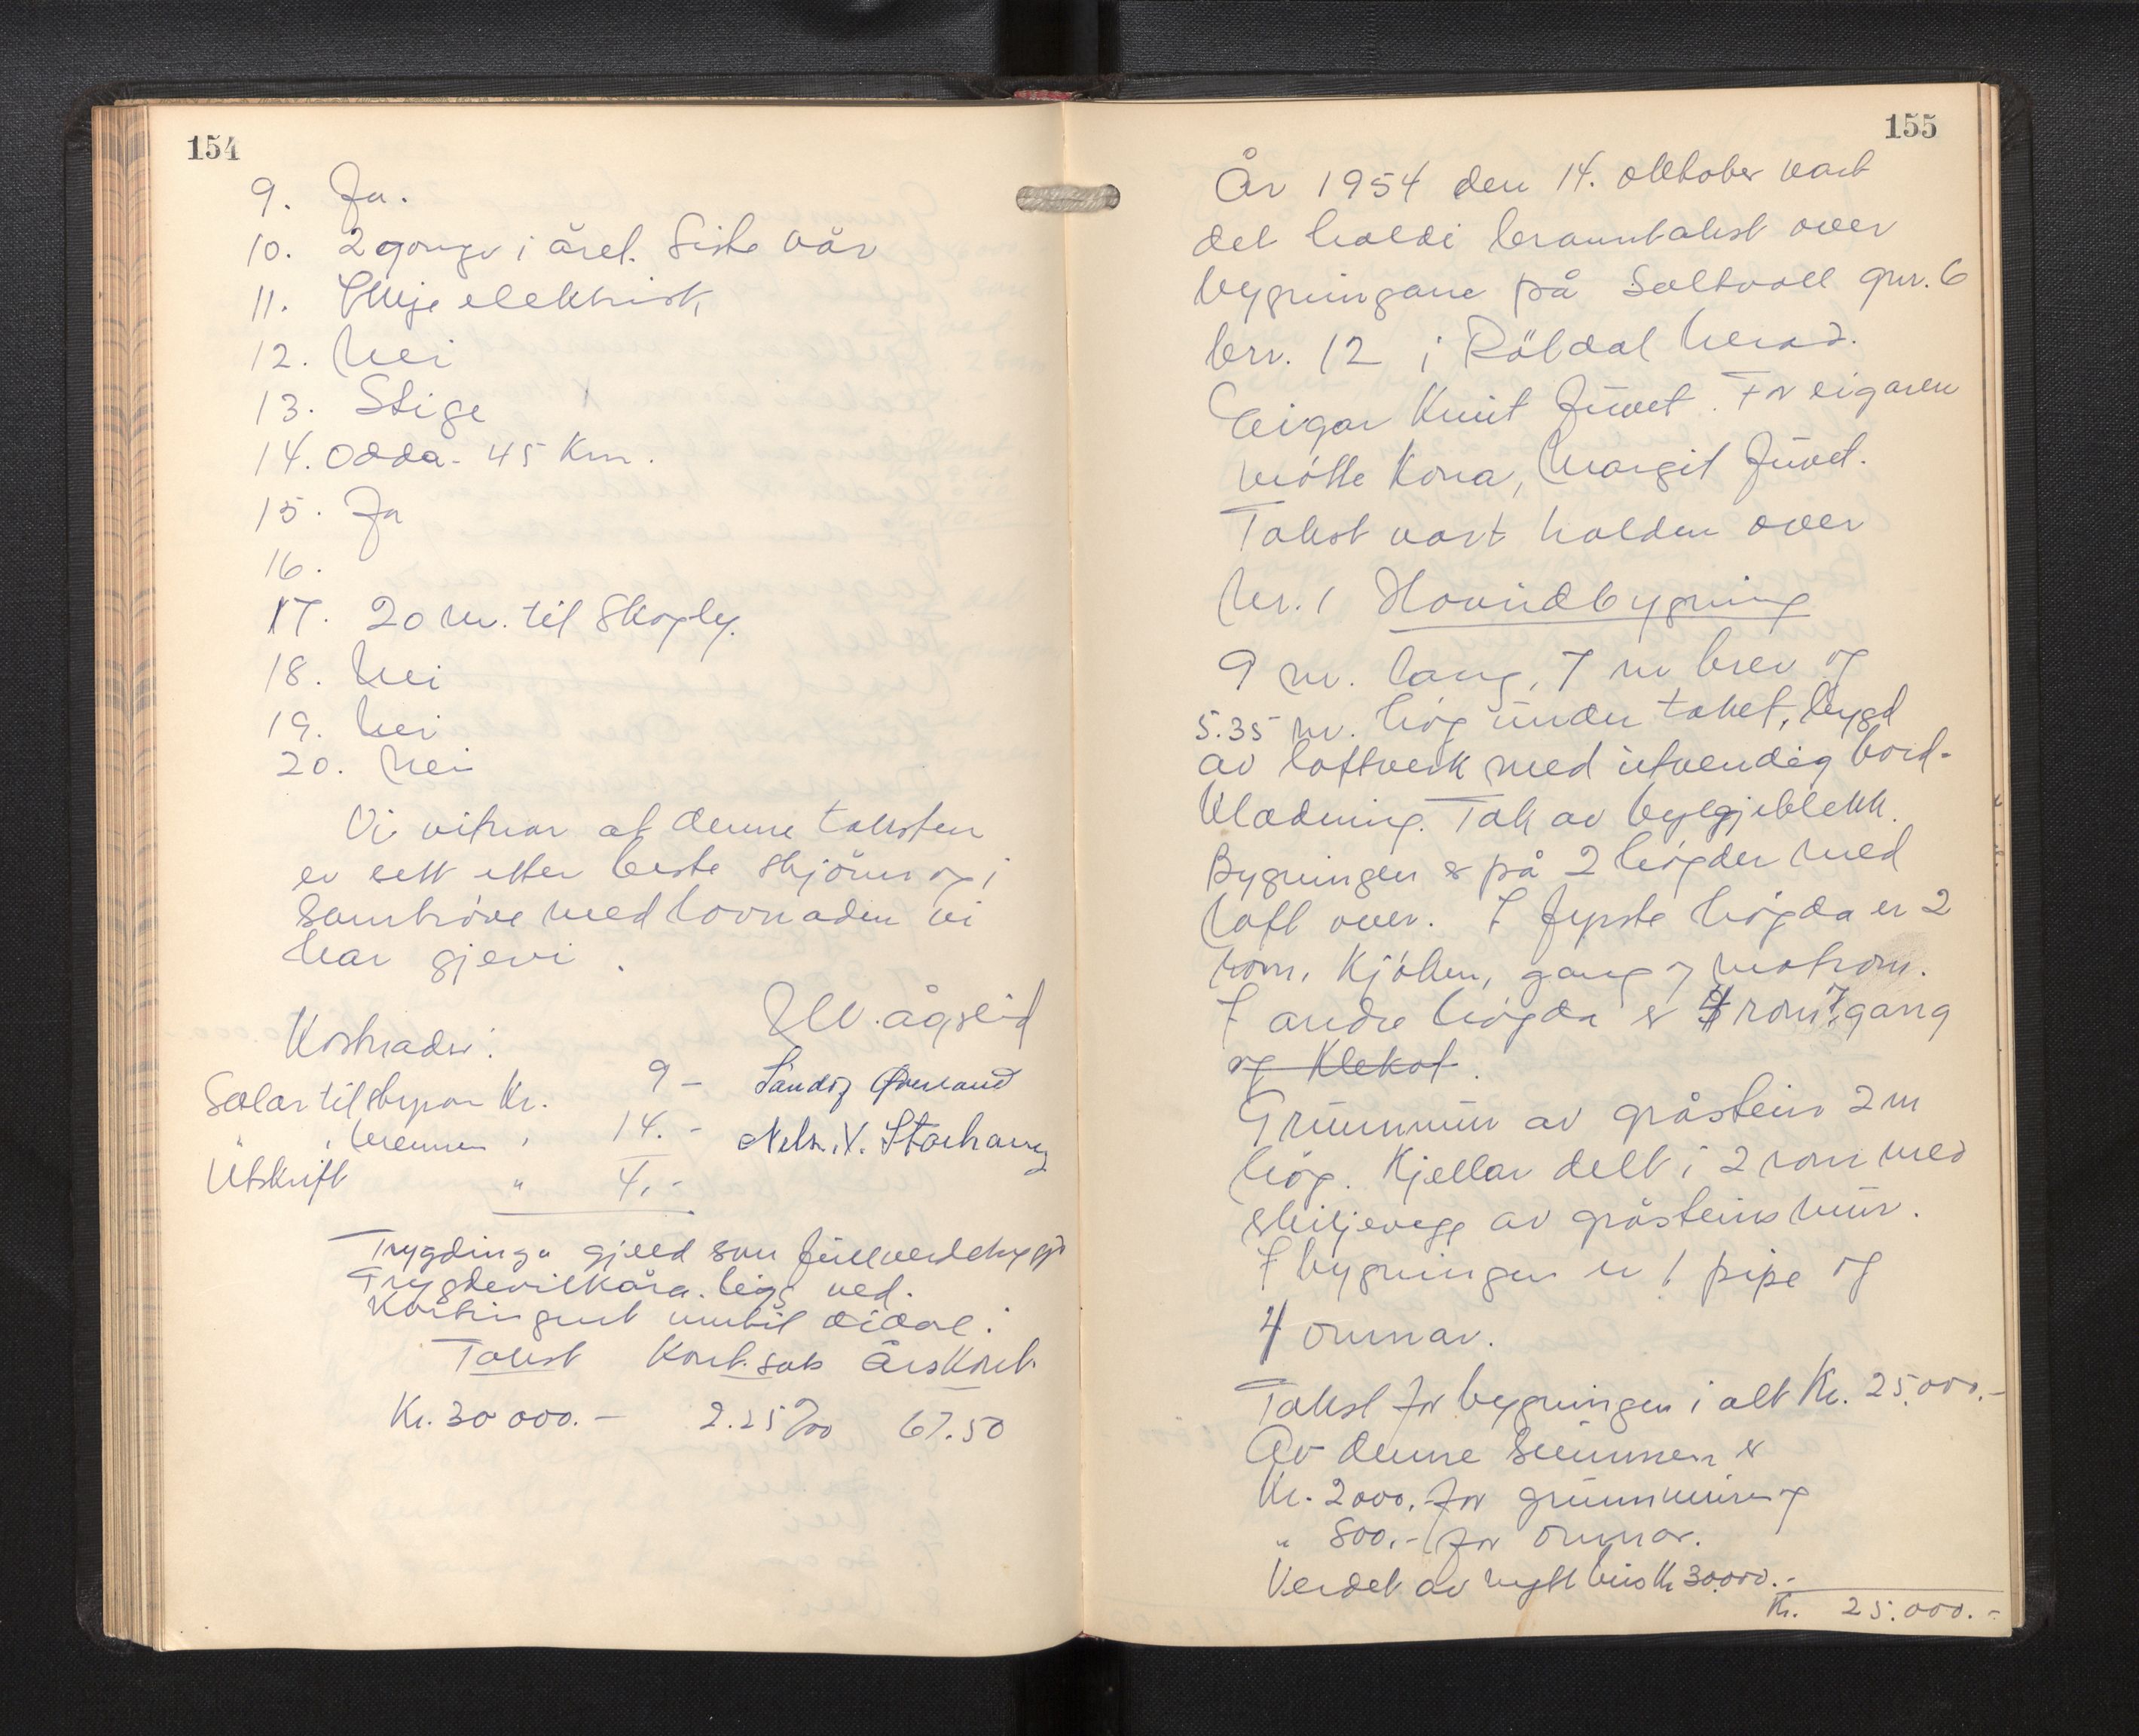 154
9. Ja.
10. 2 gonger i året. Siste vår
11. Ikkje elektrisk
12. Nei
13. Stige
14. Odda - 45 km.
15. Ja
16.
17. 20 m. til Skogly.
18. Nei
19. Nei
20. Nei
Vi vitnar at denne taksten
er sett etter beste skjönn og i
samhöve med lovnaden vi
har gjevi.
Kostnader:
Salær til skrivar Kr. 9 -
" " " 14. -
Utskrift " 4. -
Ågseid
Sandø Øverland
Nels. V. Storhaug
Trygdinga gjeld som fullverdetrygd
Trygdevilkåra legg ved.
Kontingent umtil
Takst Kont.sats Årskont.
Kr. 30 000. - 2.25 ‰ 67.50
155
År 1954 den 14. oktober vart
det haldi branntakst over
bygningane på Saltvoll gnr. 6
bnr. 12 i Röldal herad.
Eigar Knut Juvet. For eigaren
mötte kona, Margit Juvet.
Takst vart halden over
Nr. 1 Hovudbygning
9 m. lang, 7 m brei og
5.35 m. hög under taket, bygd
av loftverk med utvendig bord-
klædning. Tak av bylgjeblekk.
Bygningen er på 2 högder med
loft over. I fyrste högda er 2
rom, kjöken, gang og matrom.
I andre högda er 4 rom og gang
og klekot.
Grunnmur av gråstein 2 m
hög. Kjellar delt i 2 rom med
skiljevegg av gråsteinsmur.
I bygningen er 1 pipe og
4 omnar.
Takst for bygningen i alt Kr. 25.000.-
Av denne summen er
Kr. 2000.- for grunnmuren og
" 800.- for omnar.
Verdet av nytt hus Kr 30.000.-
Kr. 25.000.-